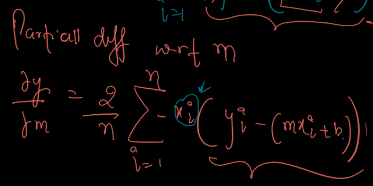 i=1
Partiall diff wrt m
∂y/∂m = 2/n ∑ⁿᵢ₌₁ -xᵢ (yᵢ - (mxᵢ + b))